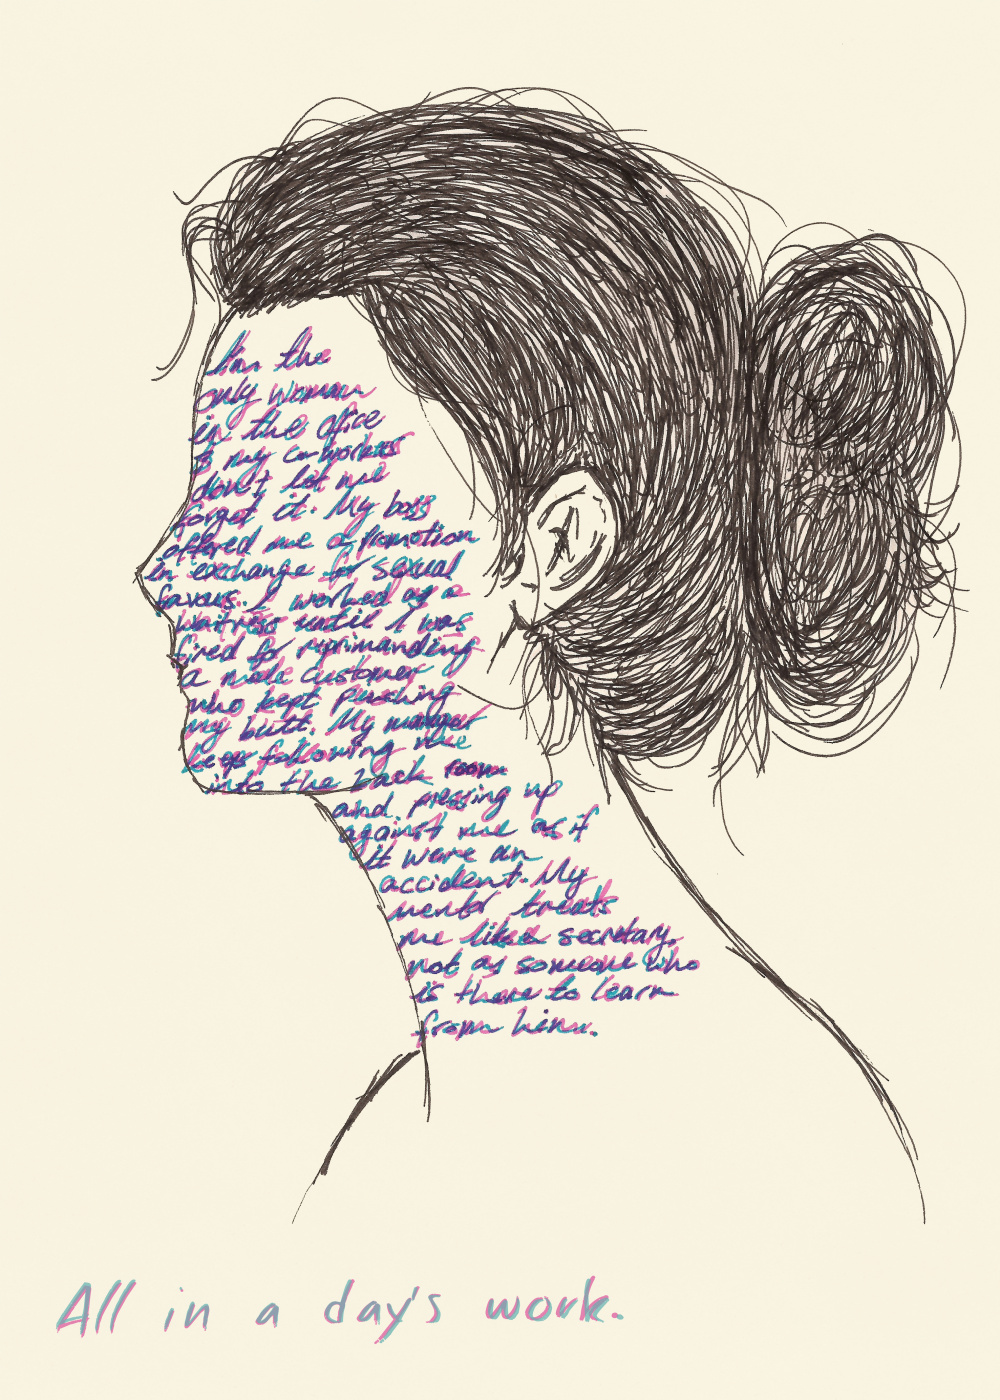 I'm the
only woman
in the office
& my co-workers
don't let me
forget it. My boss
offered me a promotion
in exchange for sexual
favours. I worked as a
waitress until I was
fired for reprimanding
a male customer
who kept pushing
my butt. My manager
keeps following me
into the back room
and pressing up
against me as if
it were an
accident. My
mentor treats
me like a secretary,
not as someone who
is there to learn
from him.
All in a day's work.